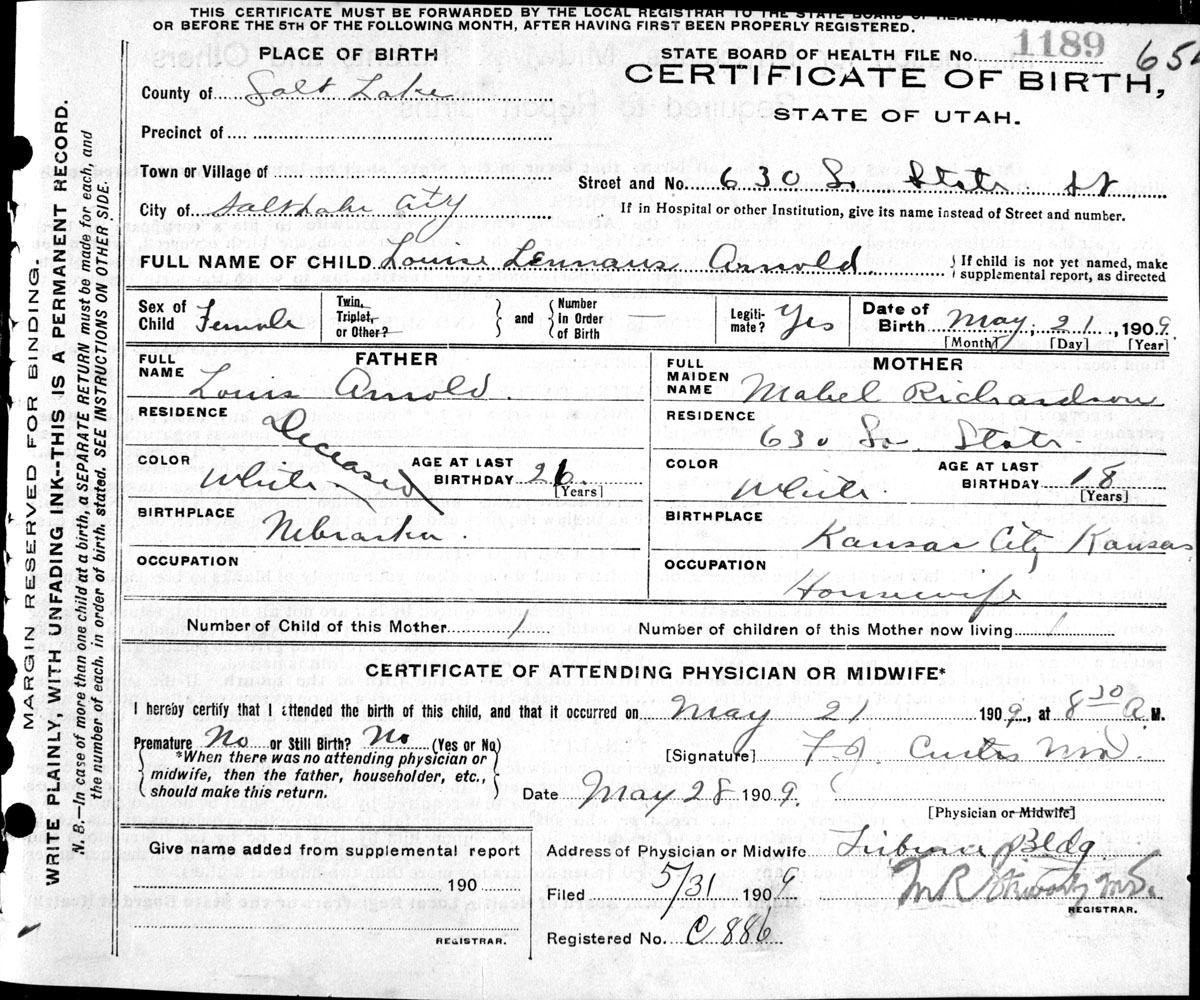 THIS CERTIFICATE MUST BE FORWARDED BY THE LOCAL REGISTRAR TO THE STATE BOARD OF HEALTH,
OR BEFORE THE 5TH OF THE FOLLOWING MONTH, AFTER HAVING FIRST BEEN PROPERLY REGISTERED.
MARGIN RESERVED FOR BINDING.
WRITE PLAINLY, WITH UNFADING INK--THIS IS A PERMANENT RECORD.
N. B.—In case of more than one child at a birth, a SEPARATE RETURN must be made for each, and
the number of each, in order of birth, stated. SEE INSTRUCTIONS ON OTHER SIDE.
PLACE OF BIRTH
STATE BOARD OF HEALTH FILE No. 1189
CERTIFICATE OF BIRTH,
STATE OF UTAH.
County of Salt Lake
Precinct of
Town or Village of
Street and No. 630 So State St
City of Salt Lake City
If in Hospital or other Institution, give its name instead of Street and number.
FULL NAME OF CHILD Louise Arnold
If child is not yet named, make
supplemental report, as directed
Sex of Child Female
Twin, Triplet, or Other?
and
Number in Order of Birth —
Legiti-mate? Yes
Date of Birth May 21, 1909
[Month] [Day] [Year]
FATHER
FULL NAME Louis Arnold
RESIDENCE Deceased
COLOR White
AGE AT LAST BIRTHDAY 26
[Years]
BIRTHPLACE Nebraska
OCCUPATION
MOTHER
FULL MAIDEN NAME Mabel Richardson
RESIDENCE 630 So State
COLOR White
AGE AT LAST BIRTHDAY 18
[Years]
BIRTHPLACE Kansas City Kansas
OCCUPATION Housewife
Number of Child of this Mother 1
Number of children of this Mother now living 1
CERTIFICATE OF ATTENDING PHYSICIAN OR MIDWIFE*
I hereby certify that I attended the birth of this child, and that it occurred on May 21 1909, at 8 30 A. M.
Premature No or Still Birth? No (Yes or No)
*When there was no attending physician or
midwife, then the father, householder, etc.,
should make this return.
[Signature] F J. Curtis MD.
Date May 28 1909.
[Physician or Midwife]
Give name added from supplemental report
190
REGISTRAR.
Address of Physician or Midwife Tribune Bldg
Filed 5/31 1909
REGISTRAR.
Registered No. C 886